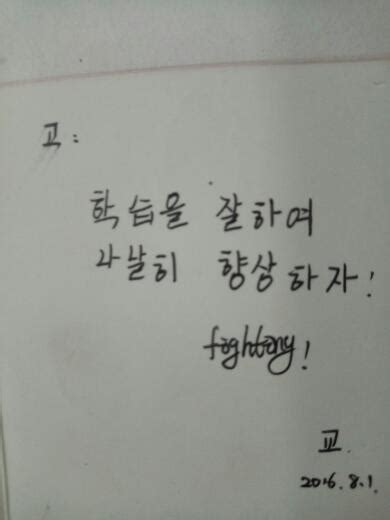 고:
학습을 잘하여
나날히 향상하자!
fighting!
교.
2016.8.1.